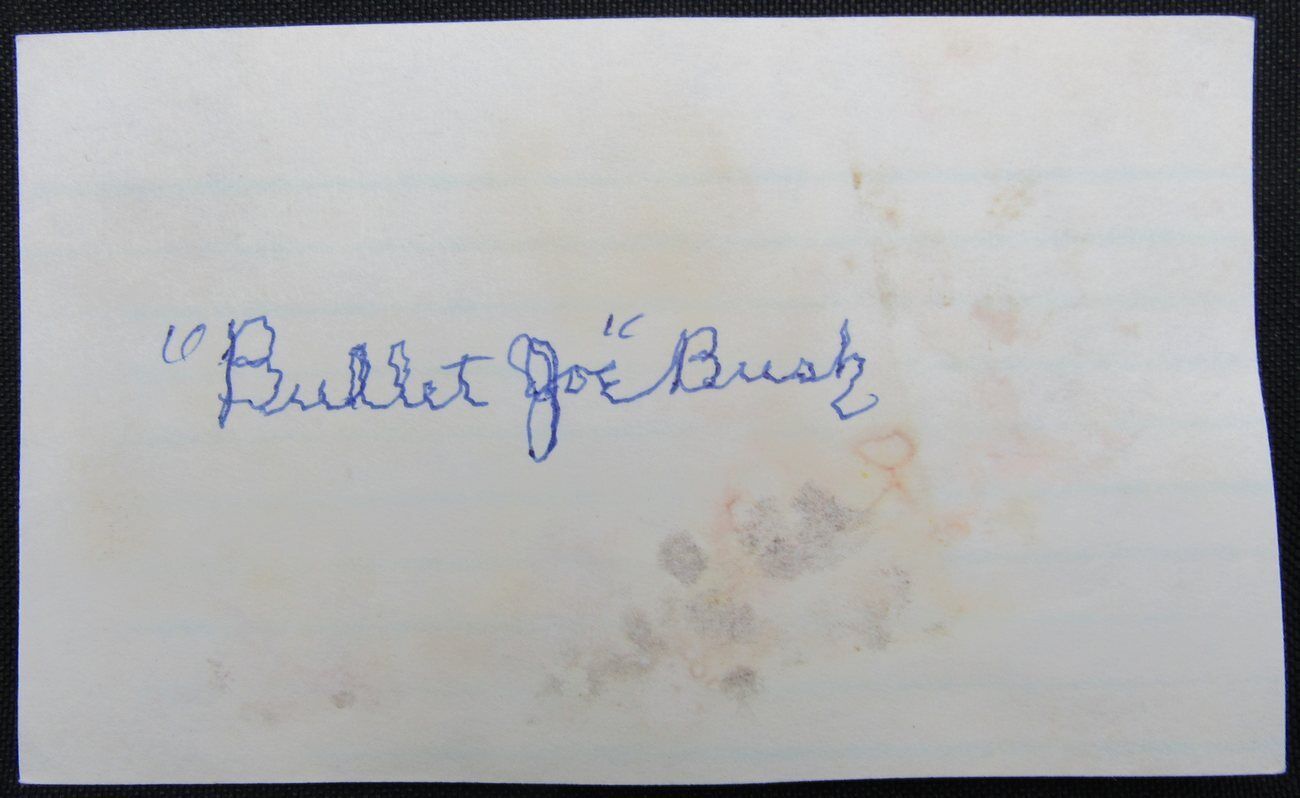 "Bullet Joe" Bush